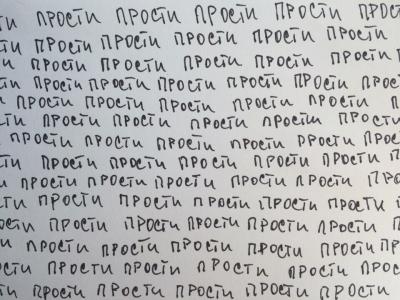 ти прости прости прости прости прост
прости прости прости прости прости
и прости прости прости прости прости
и прости прости прости прости прости прос
прости прости прости прости прости п
прости прости прости прости прости
прости прости прости прости прости прост
ти прости прости прости прости прости
и прости прости прости прости прости прос
прости прости прости прости прости п
прости прости прости прости прости
и прости прости прости прости при
прости прости прости прости прост
и прости прости прости прости прости